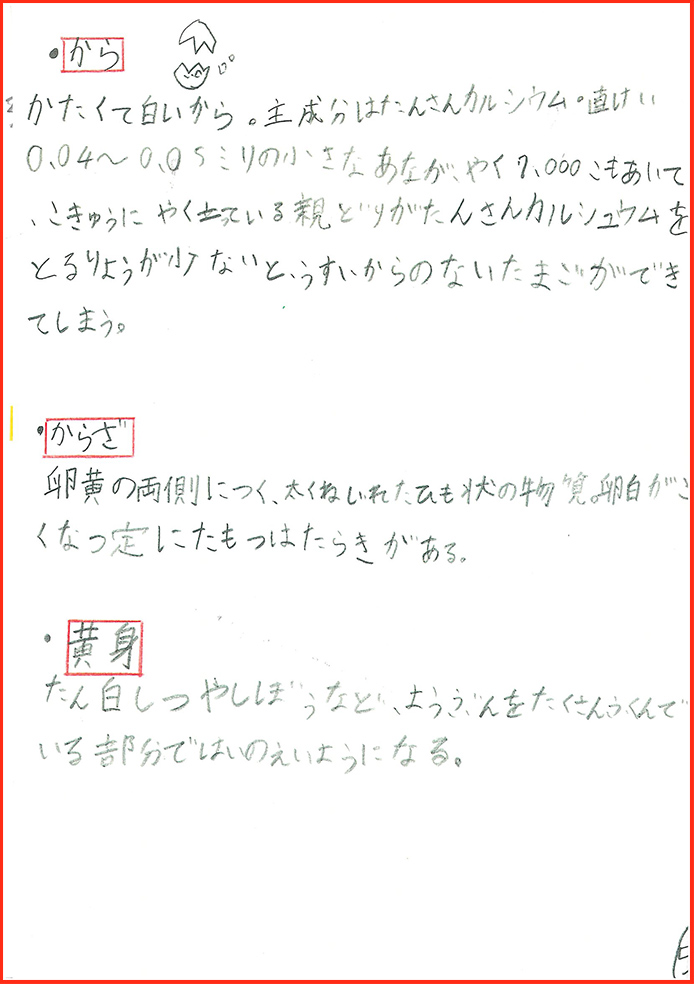 ・から
かたくて白いから。主成分はたんさんカルシウム・直けい
0.04〜0.05ミリの小さなあなが、やく7,000こもあいて
、こきゅうにやく立っている親どりがたんさんカルシュウムを
とるりょうが少ないと、うすいからのないたまごができ
てしまう。
・からざ
卵黄の両側につく、太くねじれたひも状の物質。卵白が
くなっ定にたもつはたらきがある。
・黄身
たん白しつやしぼうなど、ようぶんをたくさんふくんで
いる部分ではいのえいようになる。